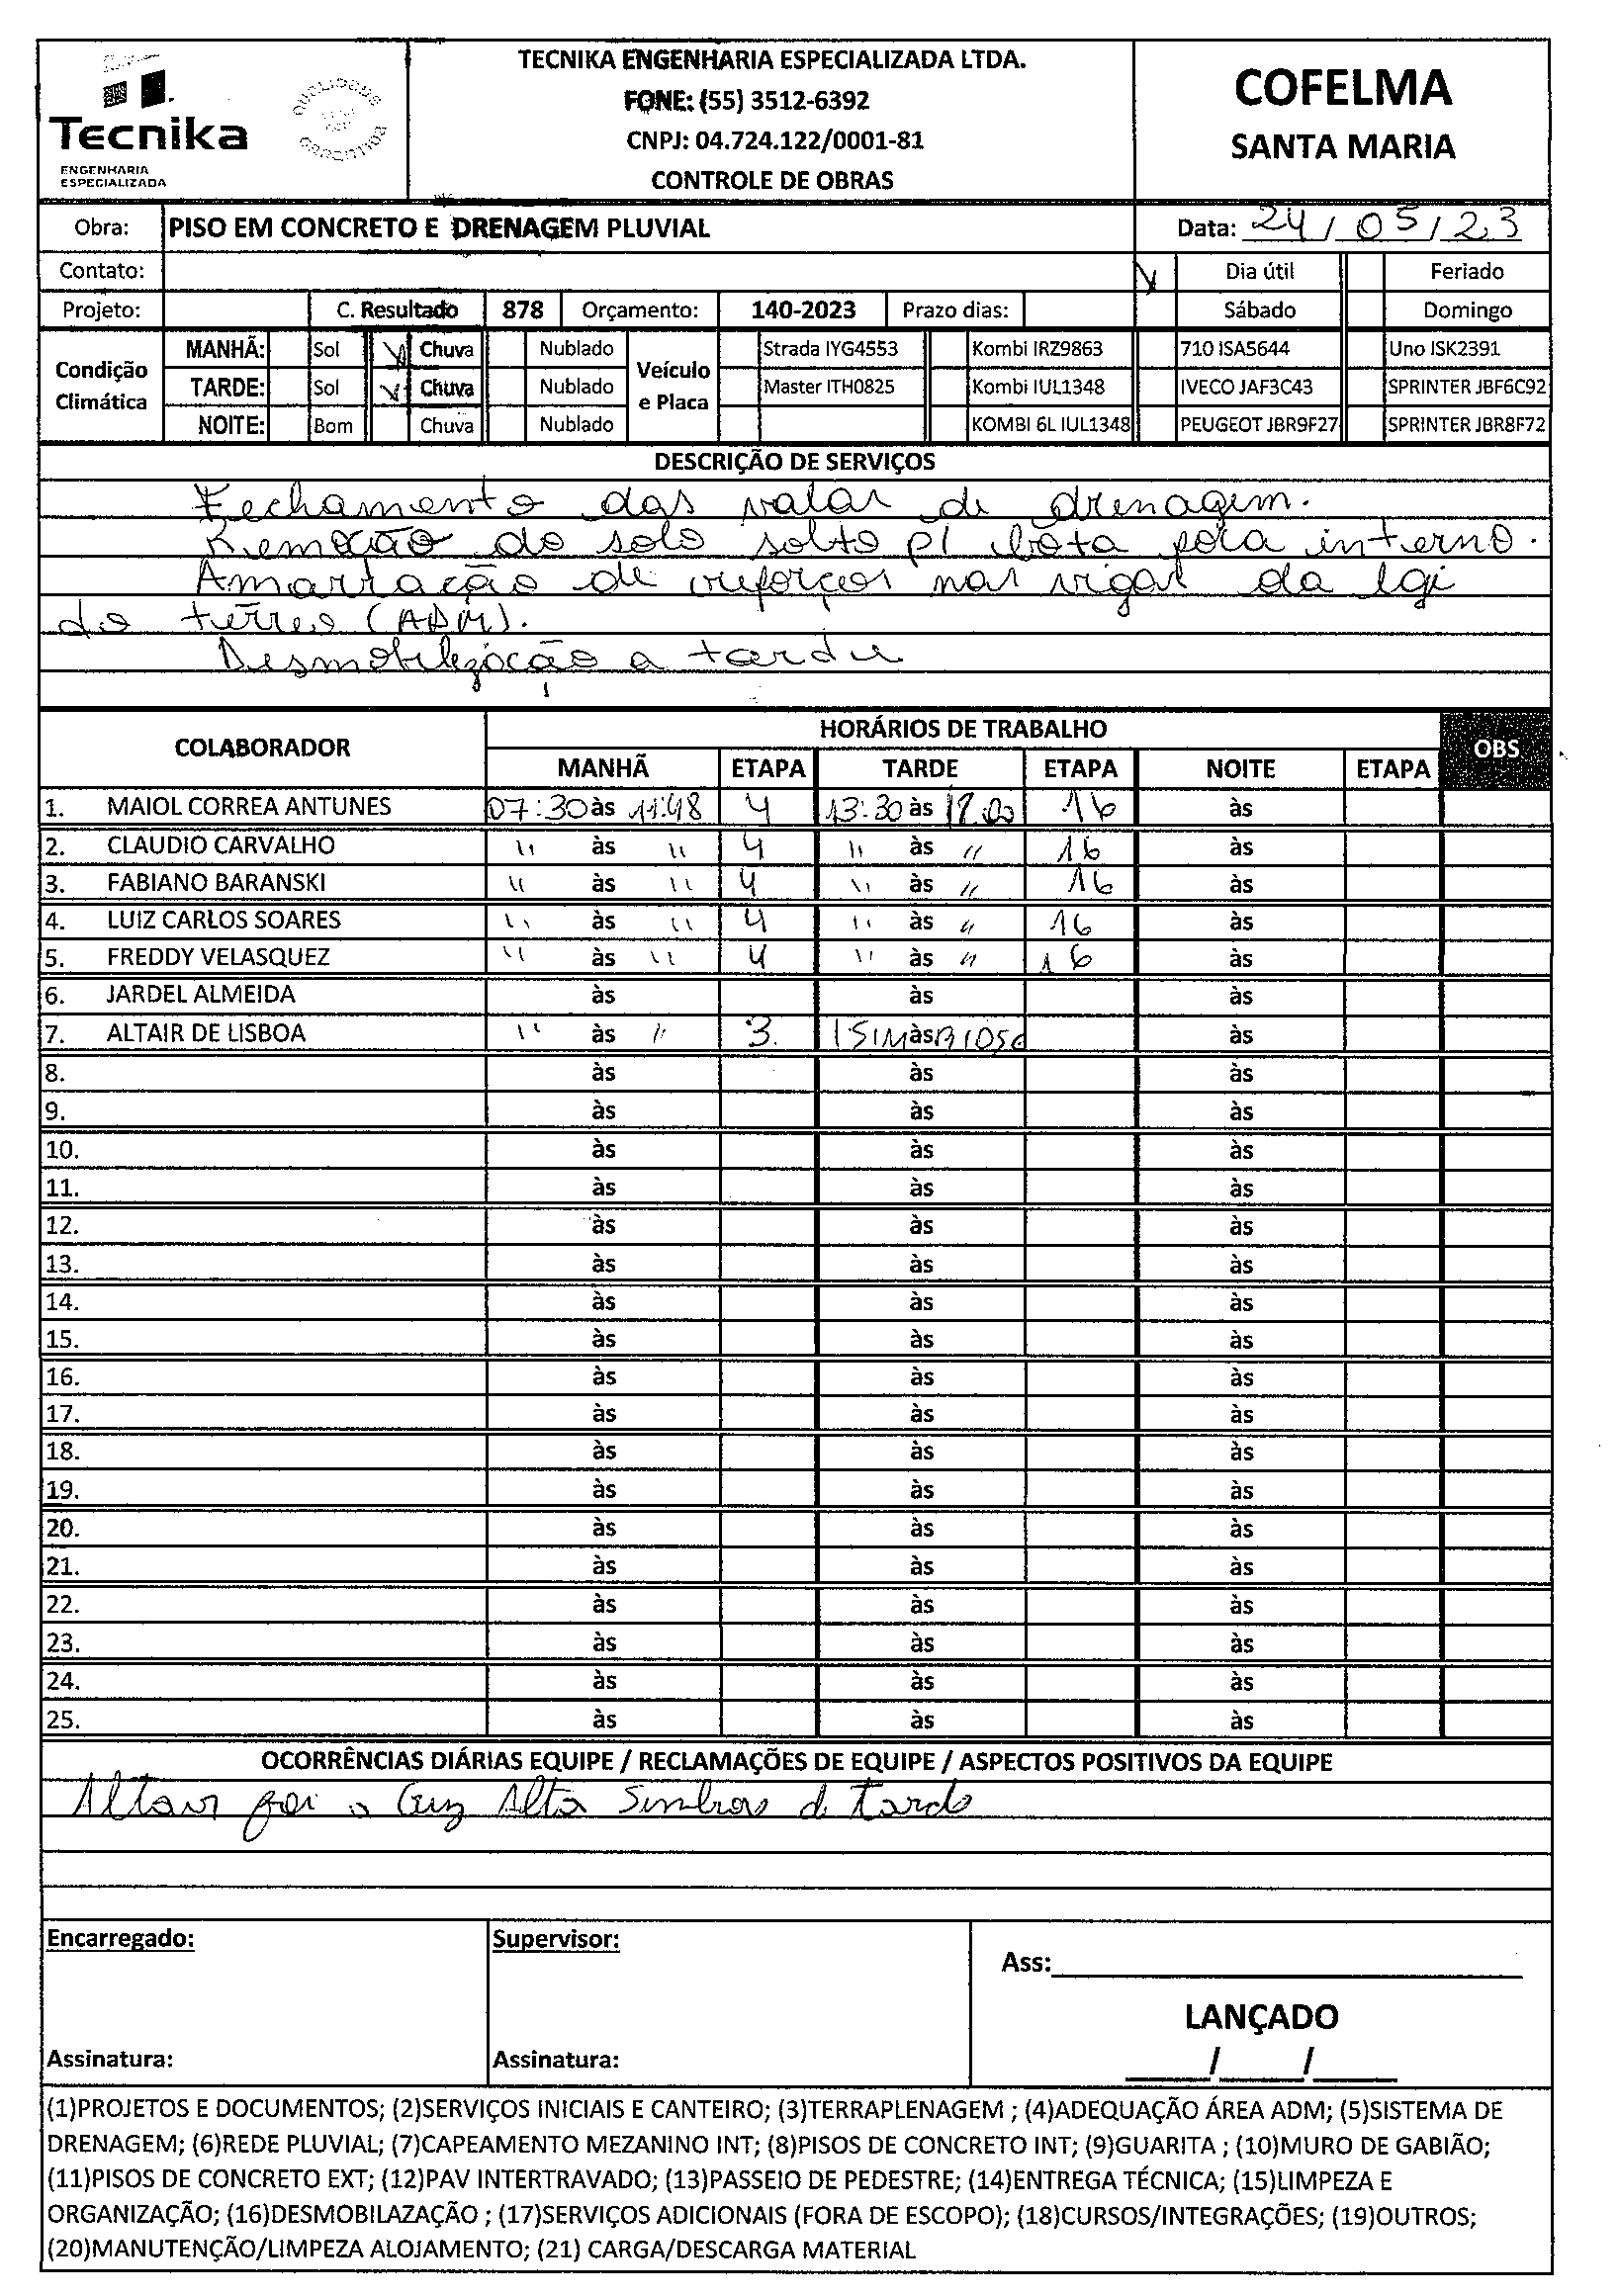 Tecnika
ENGENHARIA
ESPECIALIZADA
TECNIKA ENGENHARIA ESPECIALIZADA LTDA.
FONE: (55) 3512-6392
CNPJ: 04.724.122/0001-81
CONTROLE DE OBRAS
COFELMA
SANTA MARIA
Obra: PISO EM CONCRETO E DRENAGEM PLUVIAL Data: 24/05/23
Contato: Dia útil Feriado
Projeto: C. Resultado 878 Orçamento: 140-2023 Prazo dias: Sábado Domingo
Condição Climática MANHÃ: Sol Chuva Nublado Veículo e Placa Strada IYG4553 Kombi IRZ9863 710 ISA5644 Uno ISK2391
TARDE: Sol Chuva Nublado Master ITH0825 Kombi IUL1348 IVECO JAF3C43 SPRINTER JBF6C92
NOITE: Bom Chuva Nublado KOMBI 6L IUL1348 PEUGEOT JBR9F27 SPRINTER JBR8F72
DESCRIÇÃO DE SERVIÇOS
Fechamento das valas de drenagem.
Remoção do solo solto p/ bota fora interno.
Amarração de reforços nas vigas da
do térreo (ADM).
Desmobilização a tarde
COLABORADOR HORÁRIOS DE TRABALHO OBS
MANHÃ ETAPA TARDE ETAPA NOITE ETAPA
1. MAIOL CORREA ANTUNES 07:30 às 11:48 4 13:30 às 16 às
2. CLAUDIO CARVALHO " às " 4 " às " 16 às
3. FABIANO BARANSKI " às " 4 " às " 16 às
4. LUIZ CARLOS SOARES " às " 4 " às " 16 às
5. FREDDY VELASQUEZ " às " 4 " às " 16 às
6. JARDEL ALMEIDA às às às
7. ALTAIR DE LISBOA " às " 3. às às
8. às às às
9. às às às
10. às às às
11. às às às
12. às às às
13. às às às
14. às às às
15. às às às
16. às às às
17. às às às
18. às às às
19. às às às
20. às às às
21. às às às
22. às às às
23. às às às
24. às às às
25. às às às
OCORRÊNCIAS DIÁRIAS EQUIPE / RECLAMAÇÕES DE EQUIPE / ASPECTOS POSITIVOS DA EQUIPE
Altair foi a Cruz Alta de Tarde
Encarregado: Supervisor: Ass:
LANÇADO
Assinatura: Assinatura: / /
(1)PROJETOS E DOCUMENTOS; (2)SERVIÇOS INICIAIS E CANTEIRO; (3)TERRAPLENAGEM ; (4)ADEQUAÇÃO ÁREA ADM; (5)SISTEMA DE
DRENAGEM; (6)REDE PLUVIAL; (7)CAPEAMENTO MEZANINO INT; (8)PISOS DE CONCRETO INT; (9)GUARITA ; (10)MURO DE GABIÃO;
(11)PISOS DE CONCRETO EXT; (12)PAV INTERTRAVADO; (13)PASSEIO DE PEDESTRE; (14)ENTREGA TÉCNICA; (15)LIMPEZA E
ORGANIZAÇÃO; (16)DESMOBILAZAÇÃO ; (17)SERVIÇOS ADICIONAIS (FORA DE ESCOPO); (18)CURSOS/INTEGRAÇÕES; (19)OUTROS;
(20)MANUTENÇÃO/LIMPEZA ALOJAMENTO; (21) CARGA/DESCARGA MATERIAL